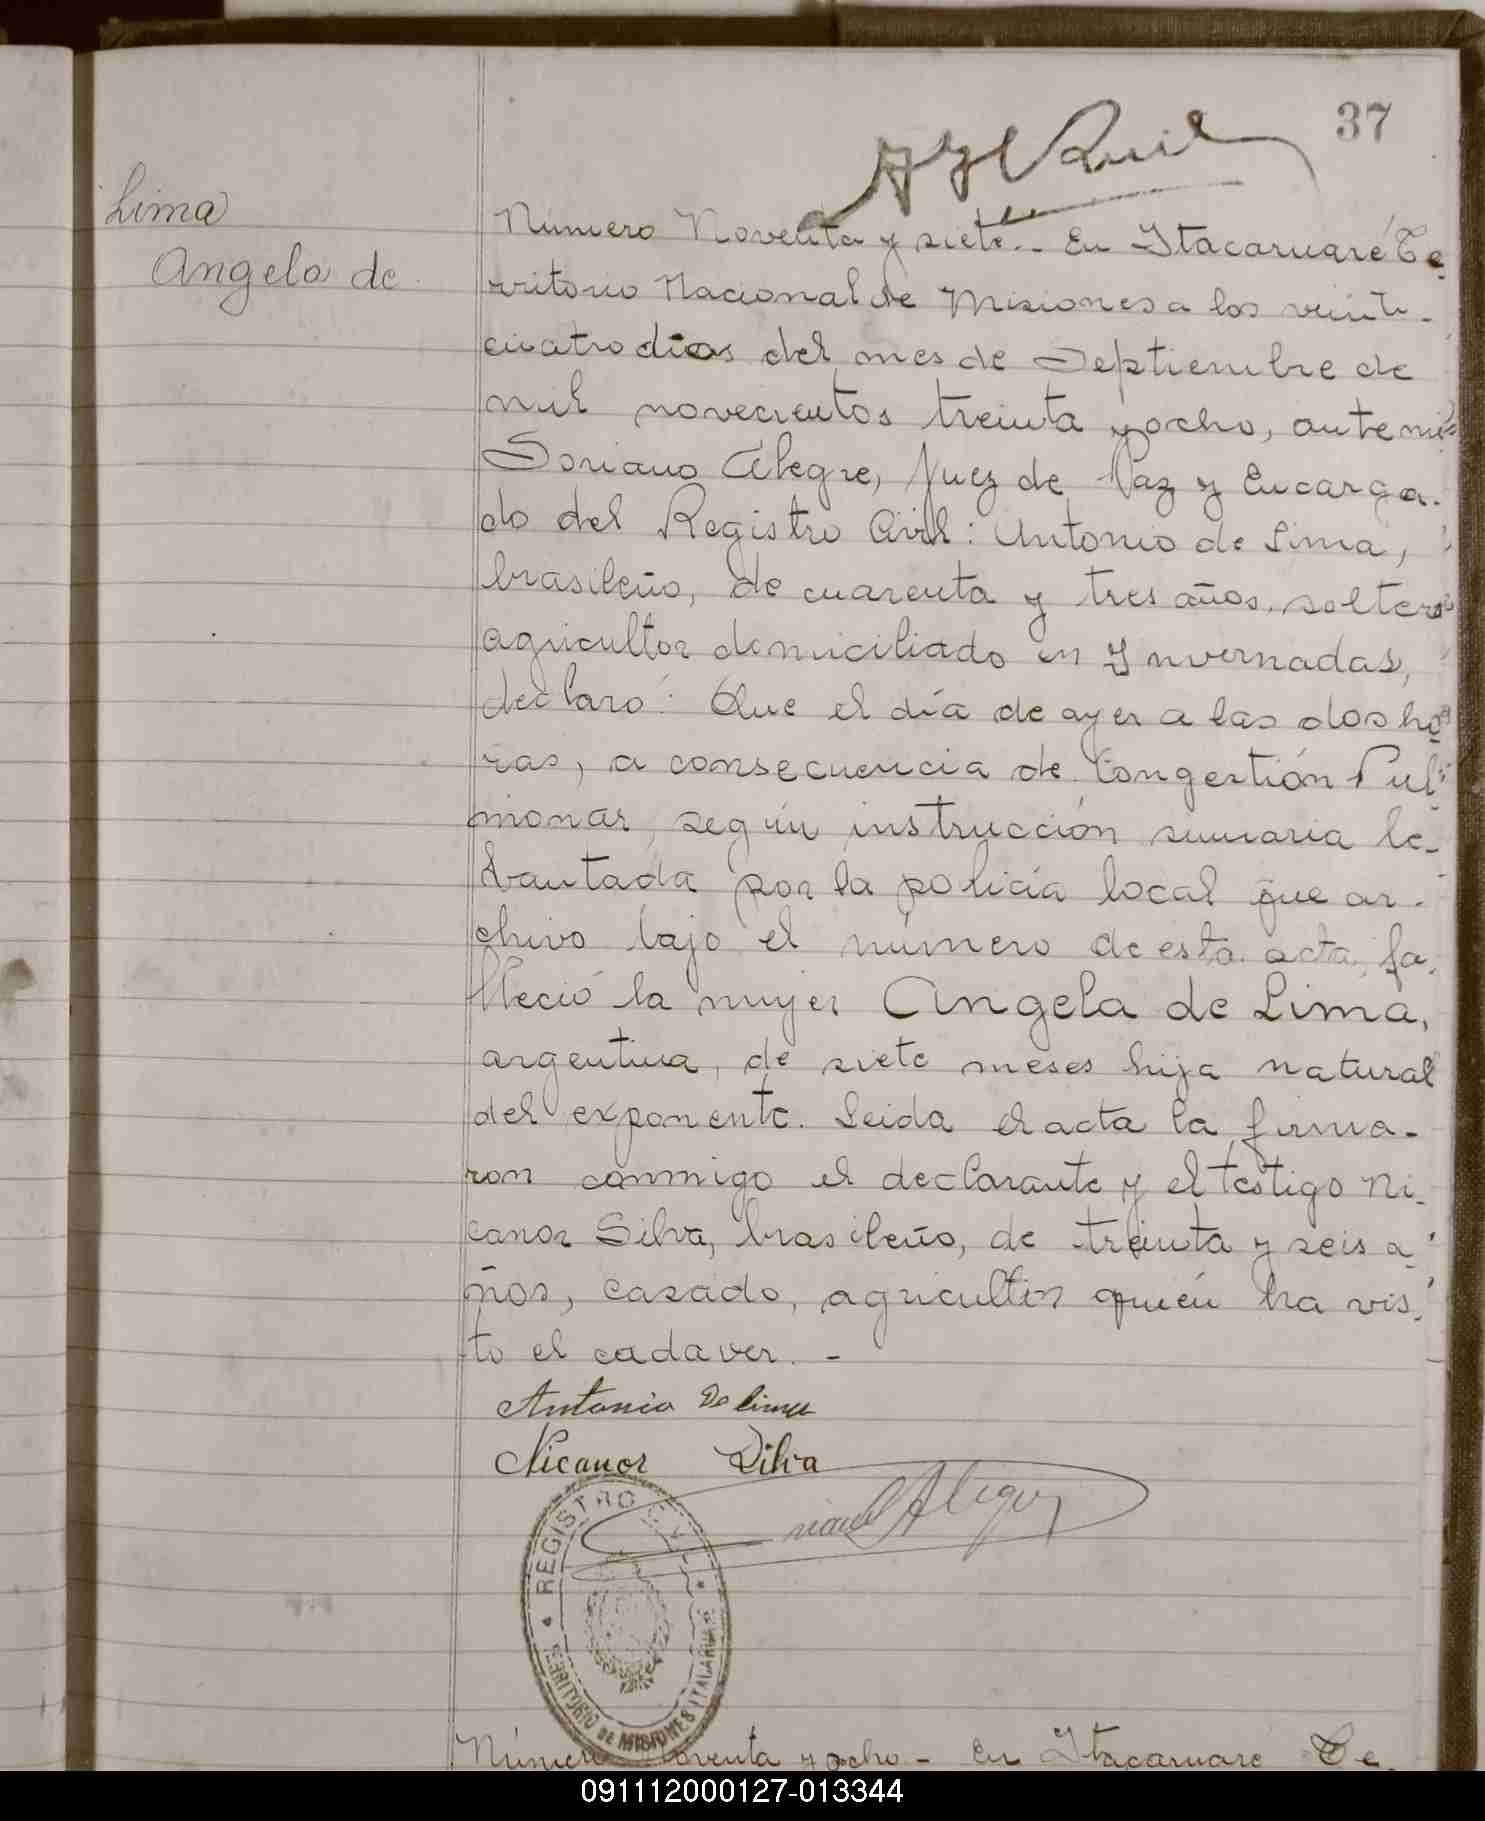 37
Lima
Angela de
Número Noventa y siete.- En Ytacaruaré Te-
rritorio Nacional de Misiones a los veinti-
cuatro dias del mes de Septiembre de
mil novecientos treinta y ocho, ante mí
Soriano Alegre, Juez de Paz y Encarga-
do del Registro Civil: Antonio de Lima,
brasileño, de cuarenta y tres años, soltero
agricultor domiciliado en Ynvernadas,
declaró: Que el día de ayer a las dos ho-
ras, a consecuencia de Congestión Pul-
monar, según instrucción sumaria le-
vantada por la policía local que ar-
chivo bajo el número de esta acta, fa-
lleció la mujer Angela de Lima,
argentina, de siete meses hija natural
del exponente. Leida el acta la firma-
ron conmigo el declarante y el testigo Ni-
canor Silva, brasileño, de treinta y seis a-
ños, casado, agricultor quién ha vis-
to el cadaver. -
Antonio De lima
Nicanor Silva
Alegre
REGISTRO CIVIL
TERRITORIO DE MISIONES
Número Noventa y ocho - En Ytacaruaré Te-
091112000127-013344